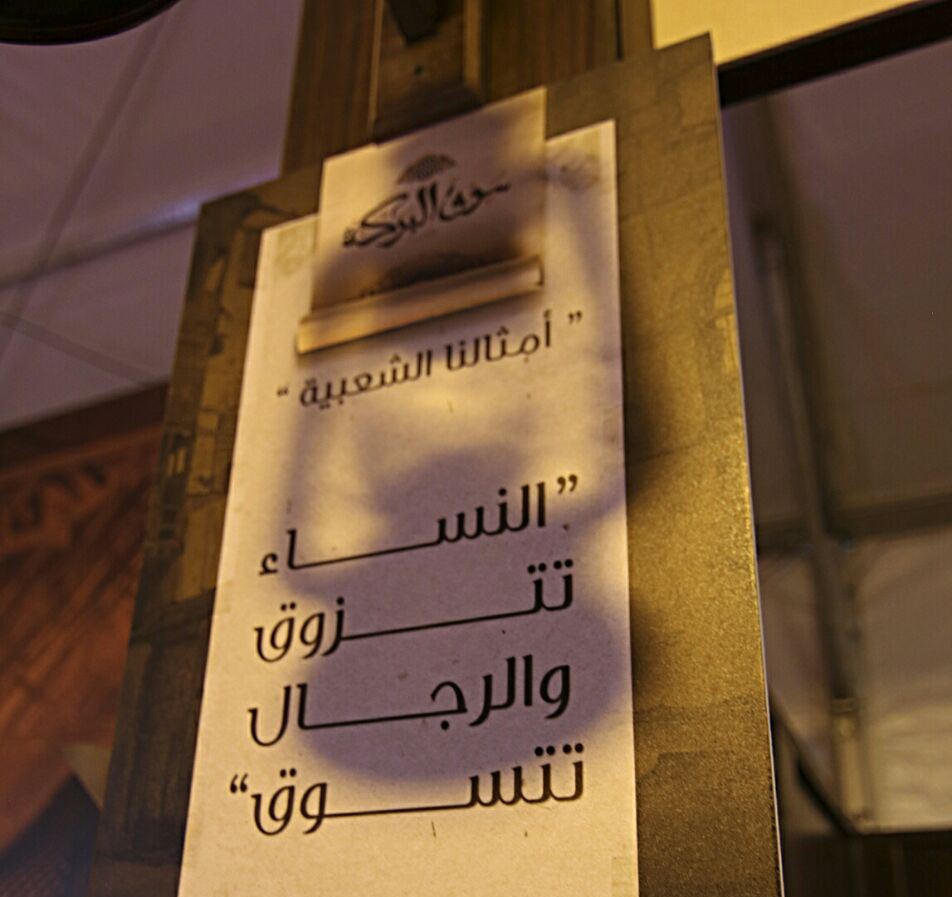 سوق البركة
” أمثالنا الشعبية “
”النساء
تتزوق
والرجال
تتسوق“